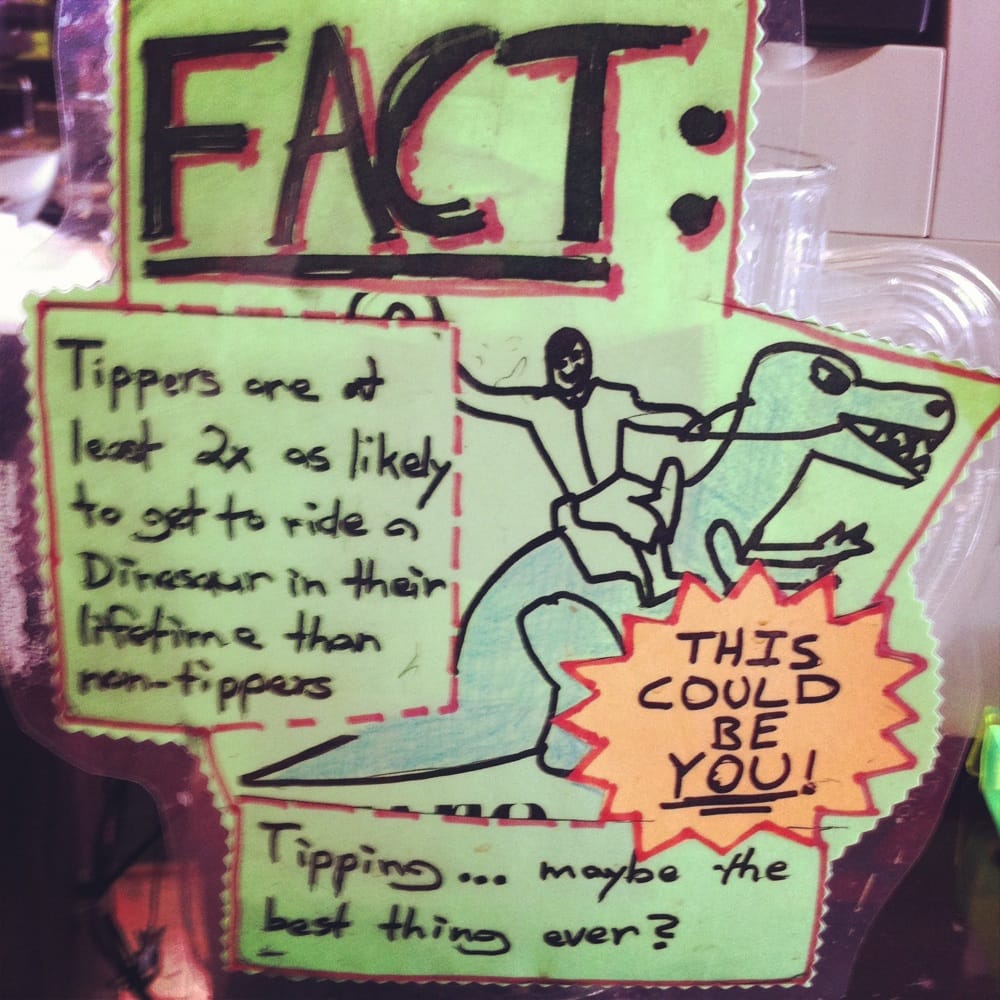 FACT:
Tippers are at
least 2x as likely
to get to ride a
Dinosaur in their
lifetime than
non-tippers
THIS
COULD
BE
YOU!
Tipping... maybe the
best thing ever?